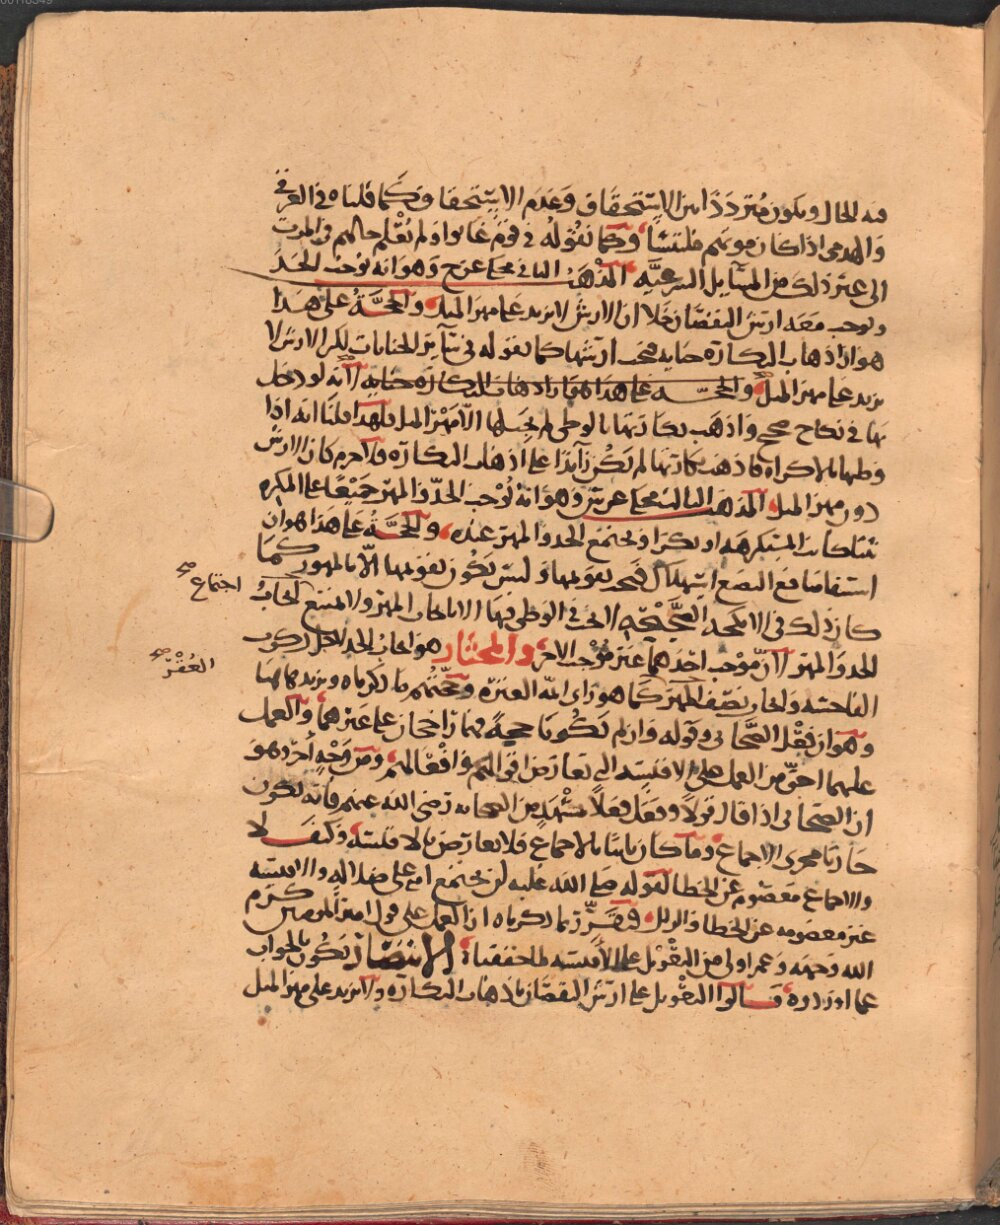 فيه الحال ويكون مترددا بين الاستحقاق وعدم الاستحقاق وكما قلناه في الغرقى
والهدمى اذا كان موتهم ملتبسا وكما نقوله في قوم غابوا ولم نعلم حالهم في الموت
الى غير ذلك من المسايل الشرعيه المذهب الثاني محكي عن ح وهو انه يوجب الحد
ويوجب معه ارش النقصان خلا ان الارش لا يزيد على مهر المثل والحجة على هذا
هو ان اذهاب البكارة جنايه فيجب ارشها كما نقوله في سائر الجنايات لكن الارش لا
يزيد على مهر المثل والحجه على هذا هو ان اذهاب البكاره جنايه الا انه لو دخل
بها في نكاح صحيح واذهب بكارتها بالوطي لم يجب لها الا مهر المثل فلهذا قلنا انه اذا
وطيها بالاكراه فاذهب بكارتها لم يكن زائدا على اذهاب البكاره فلا جرم كان الارش
دون مهر المثل المذهب الثالث محكي عن ش وهو انه يوجب الحد والمهر جميعا على المكره
ثيبا كانت المستكرهه او بكرا ويجتمع الحد والمهر عنده والحجة على هذا هو ان
استفا منافع البضع استهلاك فيجب تقويمها وليس يكون تقويمها الا بالمهور كما
كان ذلك في الانكحه الصحيحه التي في الوطي فيها الا ايجاب المهر والممتنع ايجاب
اجتماع
الحد والمهر الا ان موجب احدهما غير موجب الاخر والمختار هو ايجاب الحد لاجل ركوب
العقر
الفاحشه وايجاب نصف المهر كما هو راي ائمه العتره وحجتهم ما ذكرناه ونزيد هاهنا
وهو ان فعل الصحابي وقوله وان لم يكونا حجة فهما ارجحان على غيرهما والعمل
عليهما احق من العمل على الاقيسه التي تعارض اقوالهم وافعالهم ومن وجه آخر وهو
ان الصحابي اذا قال قولا وفعل فعلا بمشهد من الصحابه رضي الله عنهم فانه يكون
جاريا مجرى الاجماع وما كان ثابتا بالاجماع فلا يعارض بالاقيسه وكيف لا
والاجماع معصوم عن الخطا لقوله صلى الله عليه لن تجتمع امتي على ضلاله والاقيسه
غير معصومه عن الخطا والزلل فتقرر بما ذكرناه ان العمل على قول امير المومنين كرم
الله وجهه وعمر اولى من التعويل على الاقيسه لما حققناه الانتصار يكون بالجواب
عما اوردوه قالوا التعويل على ارش النقصان باذهاب البكاره ولا يزيد على مهر المثل